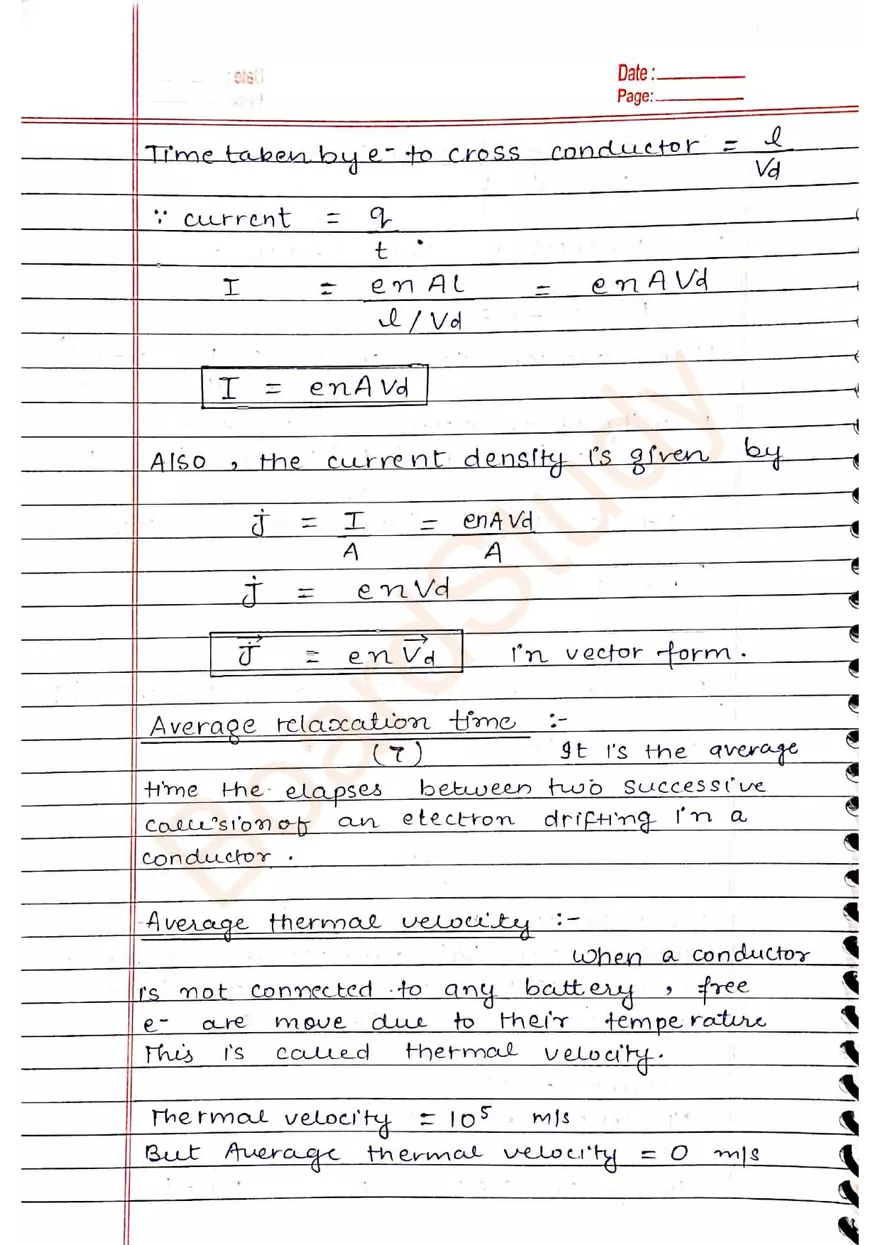 Date :
Page:
Time taken by e- to cross conductor = l / Vd
∵ current = q / t
I = enAl / l/Vd = enAVd
I = enAVd
Also , the current density is given by
j = I / A = enAVd / A
j = enVd
j⃗ = en V⃗d in vector form .
Average relaxation time :-
(τ) It is the average
time the elapses between two successive
collision of an electron drifting in a
conductor .
Average thermal velocity :-
when a conductor
is not connected to any battery , free
e- are move due to their temperature
This is called thermal velocity.
Thermal velocity = 10⁵ m/s
But Average thermal velocity = 0 m/s
BoardStudy